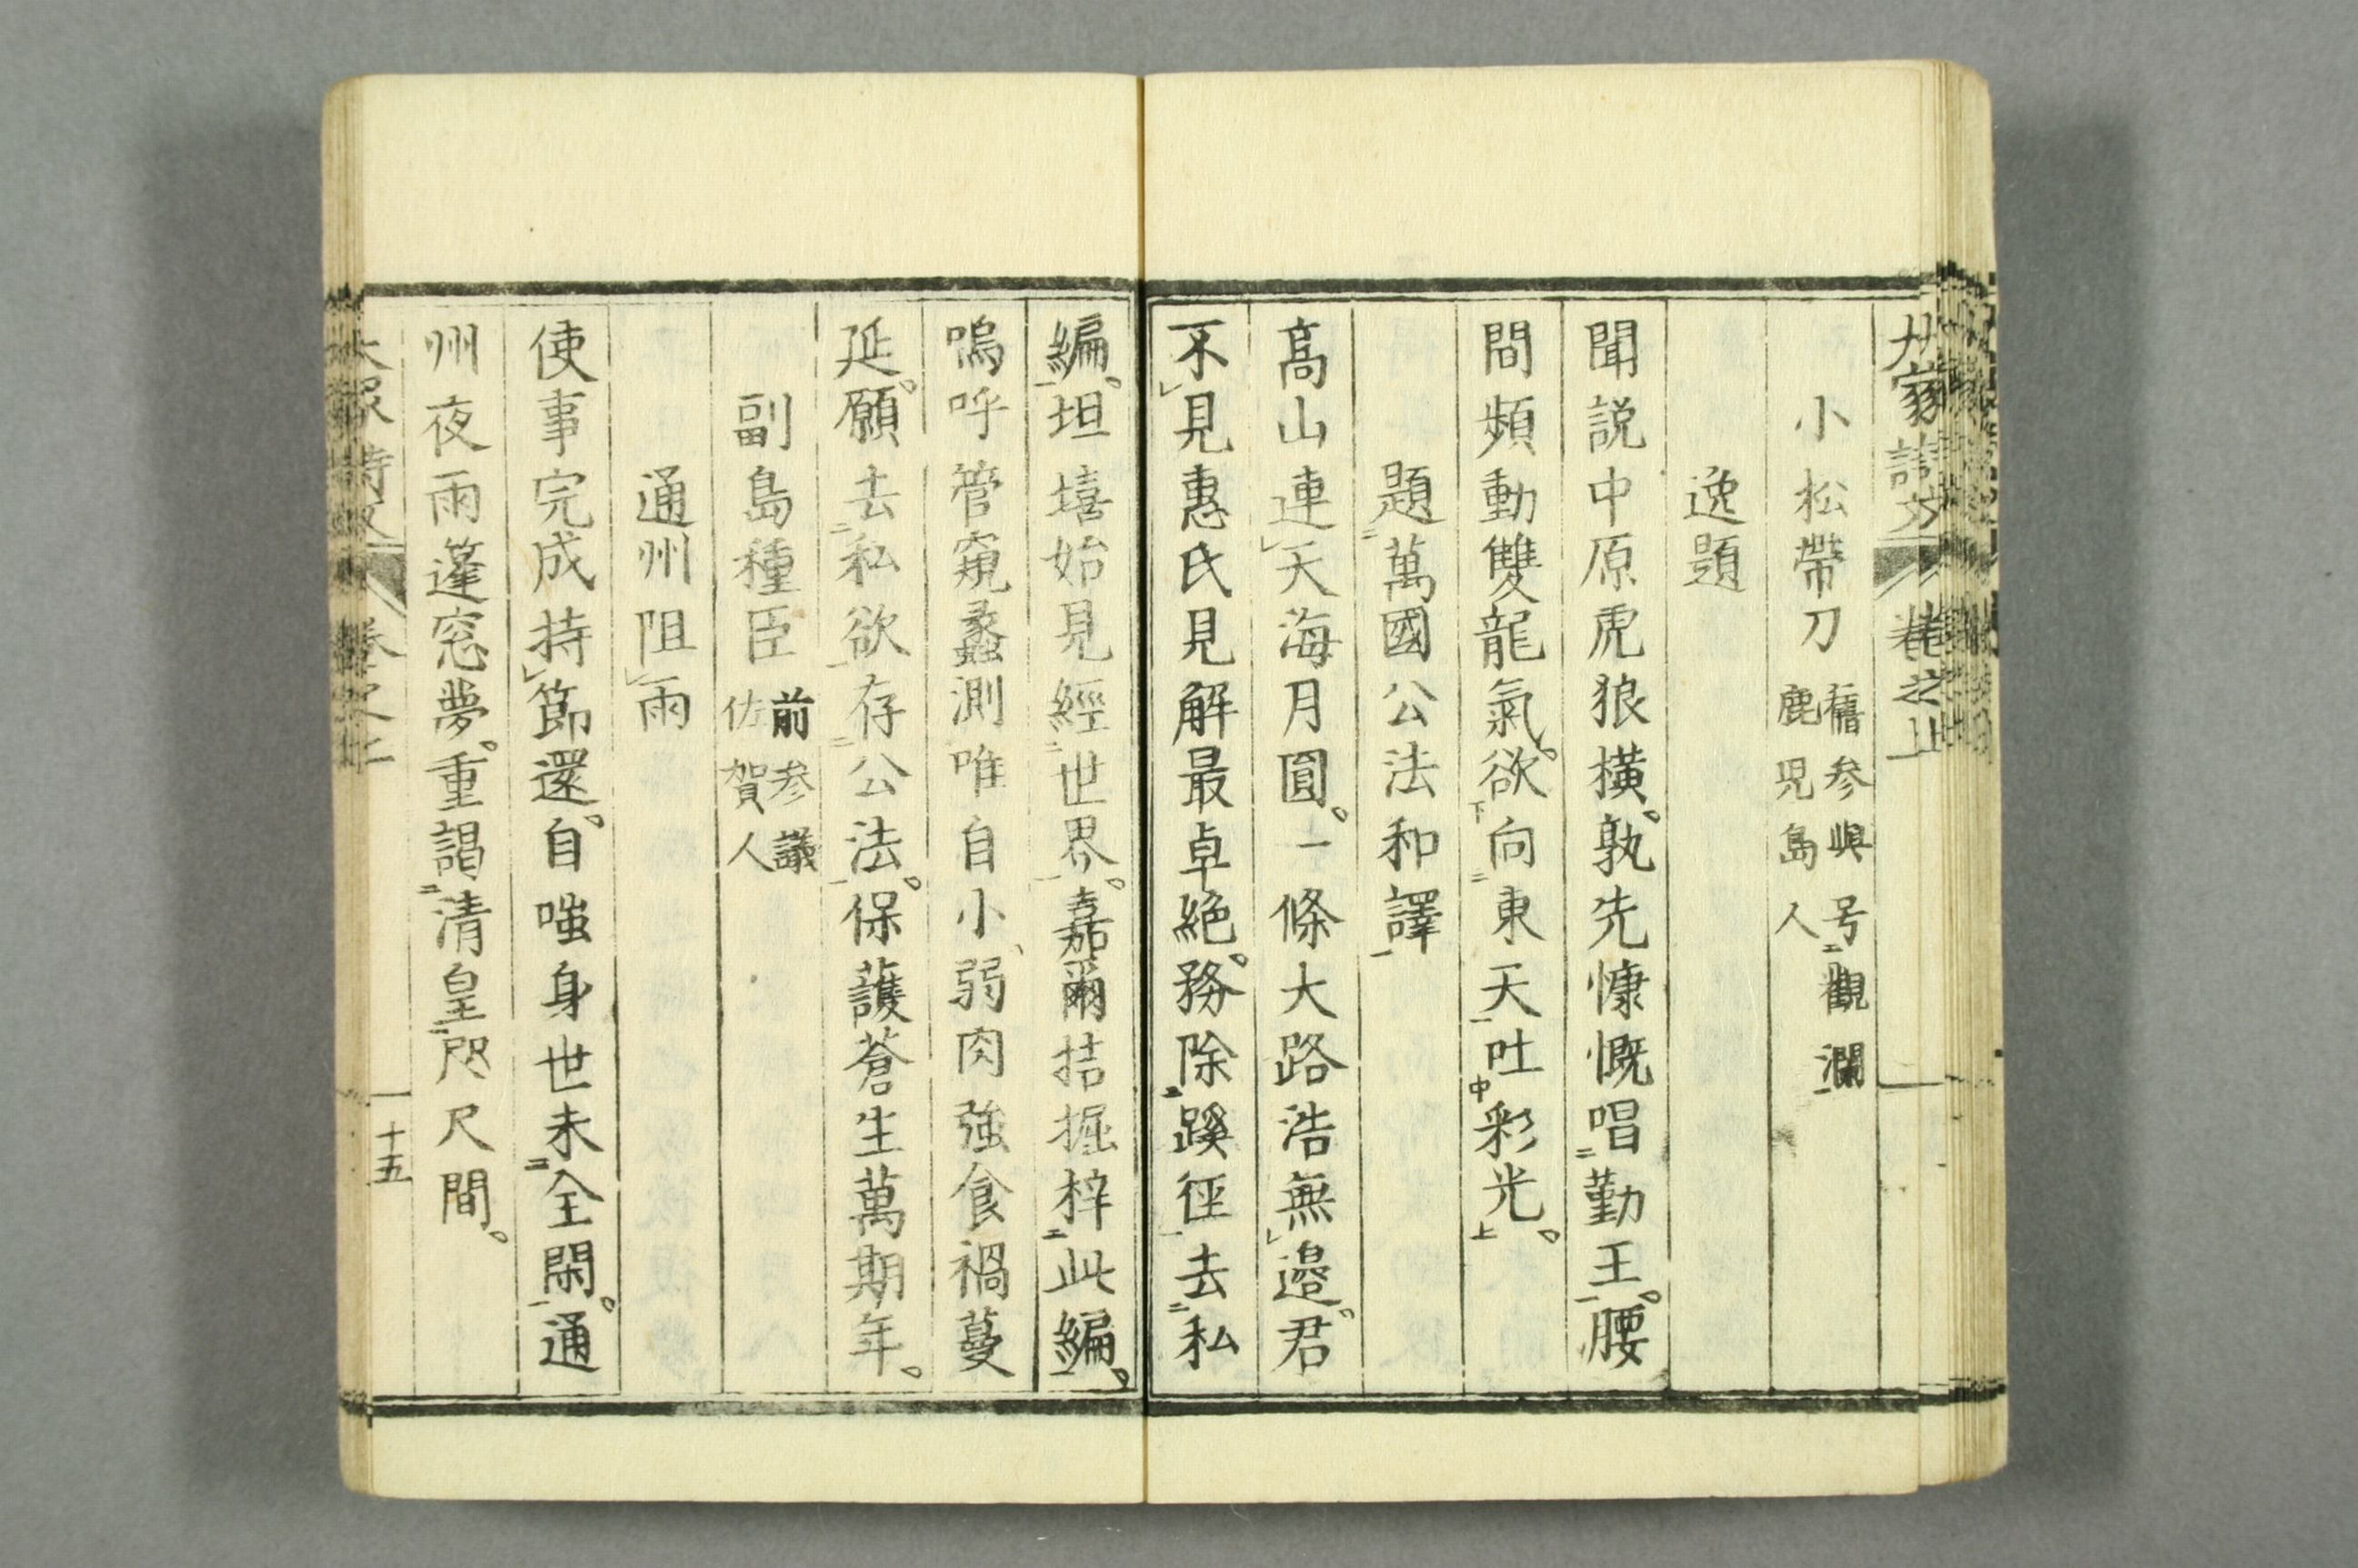 小松帶刀 舊参與号觀瀾
鹿児島人
逸題
聞説中原虎狼横。孰先慷慨唱二勤王一。腰
問頻動雙龍氣。欲下向二東天一吐中彩光上。
題二萬國公法和譯一
高山連レ天海月圓。一條大路浩無レ邉。君
不レ見惠氏見解最卓絶。務除二蹊徑一去二私
編一。坦墻始見經二世界一。嘉爾拮掘梓二此編一。
嗚呼管窺蠡測唯自小、弱肉強食禍蔓
延。願去二私欲一存二公法一。保護蒼生萬期年。
副島種臣 前参議
佐賀人
通州阻レ雨
使事完成持レ節還。自嗤身世未二全閑一。通
州夜雨篷窓夢。重謁二清皇一咫尺間。
十五